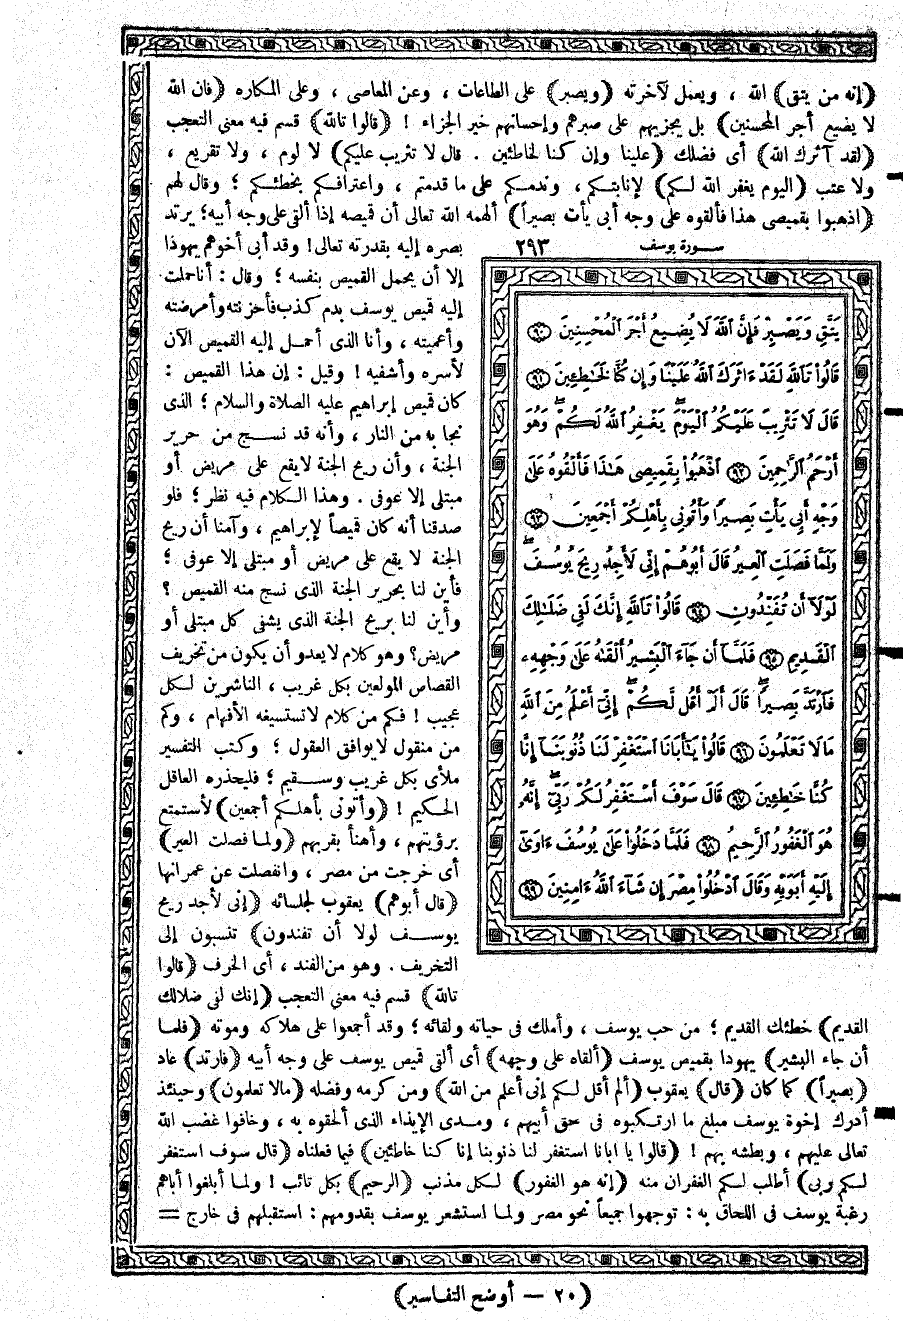 (إنه من يتق) الله ، ويعمل لآخرته (ويصبر) على الطاعات ، وعن المعاصى ، وعلى المكاره (فان الله
لا يضيع أجر المحسنين) بل يجزيهم على صبرهم وإحسانهم خير الجزاء ! (قالوا تالله) قسم فيه معنى التعجب
(لقد آثرك الله) أى فضلك (علينا وإن كنا لخاطئين . قال لا تثريب عليكم) لا لوم ، ولا تقريع ،
ولا عتب (اليوم يغفر الله لكم) لإنابتكم ، وندمكم على ما قدمتم ، واعترافكم بخطئكم ؛ وقال لهم
(اذهبوا بقميصى هذا فألقوه على وجه أبى يأت بصيراً) ألهمه الله تعالى أن قميصه إذا ألقى على وجه أبيه؛ يرتد
سورة يوسف ٢٩٣
يَتَّقِ وَيَصْبِرْ فَإِنَّ ٱللَّهَ لَا يُضِيعُ أَجْرَ ٱلْمُحْسِنِينَ ﴿٩٠﴾
قَالُوا۟ تَٱللَّهِ لَقَدْ ءَاثَرَكَ ٱللَّهُ عَلَيْنَا وَإِن كُنَّا لَخَٰطِـِٔينَ ﴿٩١﴾
قَالَ لَا تَثْرِيبَ عَلَيْكُمُ ٱلْيَوْمَ ۖ يَغْفِرُ ٱللَّهُ لَكُمْ ۖ وَهُوَ
أَرْحَمُ ٱلرَّٰحِمِينَ ﴿٩٢﴾ ٱذْهَبُوا۟ بِقَمِيصِى هَٰذَا فَأَلْقُوهُ عَلَىٰ
وَجْهِ أَبِى يَأْتِ بَصِيرًا وَأْتُونِى بِأَهْلِكُمْ أَجْمَعِينَ ﴿٩٣﴾
وَلَمَّا فَصَلَتِ ٱلْعِيرُ قَالَ أَبُوهُمْ إِنِّى لَأَجِدُ رِيحَ يُوسُفَ ۖ
لَوْلَآ أَن تُفَنِّدُونِ ﴿٩٤﴾ قَالُوا۟ تَٱللَّهِ إِنَّكَ لَفِى ضَلَٰلِكَ
ٱلْقَدِيمِ ﴿٩٥﴾ فَلَمَّآ أَن جَآءَ ٱلْبَشِيرُ أَلْقَىٰهُ عَلَىٰ وَجْهِهِۦ
فَٱرْتَدَّ بَصِيرًا ۖ قَالَ أَلَمْ أَقُل لَّكُمْ ۖ إِنِّىٓ أَعْلَمُ مِنَ ٱللَّهِ
مَا لَا تَعْلَمُونَ ﴿٩٦﴾ قَالُوا۟ يَٰٓأَبَانَا ٱسْتَغْفِرْ لَنَا ذُنُوبَنَآ إِنَّا
كُنَّا خَٰطِـِٔينَ ﴿٩٧﴾ قَالَ سَوْفَ أَسْتَغْفِرُ لَكُمْ رَبِّىٓ ۖ إِنَّهُۥ
هُوَ ٱلْغَفُورُ ٱلرَّحِيمُ ﴿٩٨﴾ فَلَمَّا دَخَلُوا۟ عَلَىٰ يُوسُفَ ءَاوَىٰٓ
إِلَيْهِ أَبَوَيْهِ وَقَالَ ٱدْخُلُوا۟ مِصْرَ إِن شَآءَ ٱللَّهُ ءَامِنِينَ ﴿٩٩﴾
بصره إليه بقدرته تعالى! وقد أبى أخوهم يهوذا
إلا أن يحمل القميص بنفسه ؛ وقال : أنا حملت
إليه قميص يوسف بدم كذب فأحزنته وأمرضته
وأعميته ، وأنا الذى أحمل إليه القميص الآن
لأسره وأشفيه ! وقيل : إن هذا القميص :
كان قميص إبراهيم عليه الصلاة والسلام ؛ الذى
نجا به من النار ، وأنه قد نسج من حرير
الجنة ، وأن ريح الجنة لا يقع على مريض أو
مبتلى إلا عوفى . وهذا الكلام فيه نظر ؛ فلو
صدقنا أنه كان قميصاً لإبراهيم ، وآمنا أن ريح
الجنة لا يقع على مريض أو مبتلى إلا عوفى ؛
فأين لنا بحرير الجنة الذى نسج منه القميص ؟
وأين لنا بريح الجنة الذى يشفى كل مبتلى أو
مريض؟ وهو كلام لا يعدو أن يكون من تخريف
القصاص المولعين بكل غريب ، الناشرين لكل
عجيب ! فكم من كلام لا تستسيغه الأفهام ، وكم
من منقول لا يوافق العقول ؛ وكتب التفسير
ملأى بكل غريب وسقيم ؛ فليحذره العاقل
الحكيم ! (وأتونى بأهلكم أجمعين) لأستمتع
برؤيتهم ، وأهنأ بقربهم (ولما فصلت العير)
أى خرجت من مصر ، وانفصلت عن عمرانها
(قال أبوهم) يعقوب لجلسائه (إنى لأجد ريح
يوسف لولا أن تفندون) تنسبون إلى
التخريف . وهو من الفند ، أى الخرف (قالوا
تالله) قسم فيه معنى التعجب (إنك لفى ضلالك
القديم) خطئك القديم ؛ من حب يوسف ، وأملك فى حياته ولقائه ؛ وقد أجمعوا على هلاكه وموته (فلما
أن جاء البشير) يهوذا بقميص يوسف (ألقاه على وجهه) أى ألقى قميص يوسف على وجه أبيه (فارتد) عاد
(بصيراً) كما كان (قال) يعقوب (ألم أقل لكم إنى أعلم من الله) ومن كرمه وفضله (مالا تعلمون) وحينئذ
أدرك إخوة يوسف مبلغ ما ارتكبوه فى حق أبيهم ، ومدى الإيذاء الذى ألحقوه به ، وخافوا غضب الله
تعالى عليهم ، وبطشه بهم ! (قالوا يا ابانا استغفر لنا ذنوبنا إنا كنا خاطئين) فيما فعلناه (قال سوف استغفر
لكم ربى) أطلب لكم الغفران منه (إنه هو الغفور) لكل مذنب (الرحيم) بكل تائب ! ولما أبلغوا أباهم
رغبة يوسف فى اللحاق به : توجهوا جميعاً نحو مصر ولما استشعر يوسف بقدومهم : استقبلهم فى خارج =
(٢٠ — أوضح التفاسير)